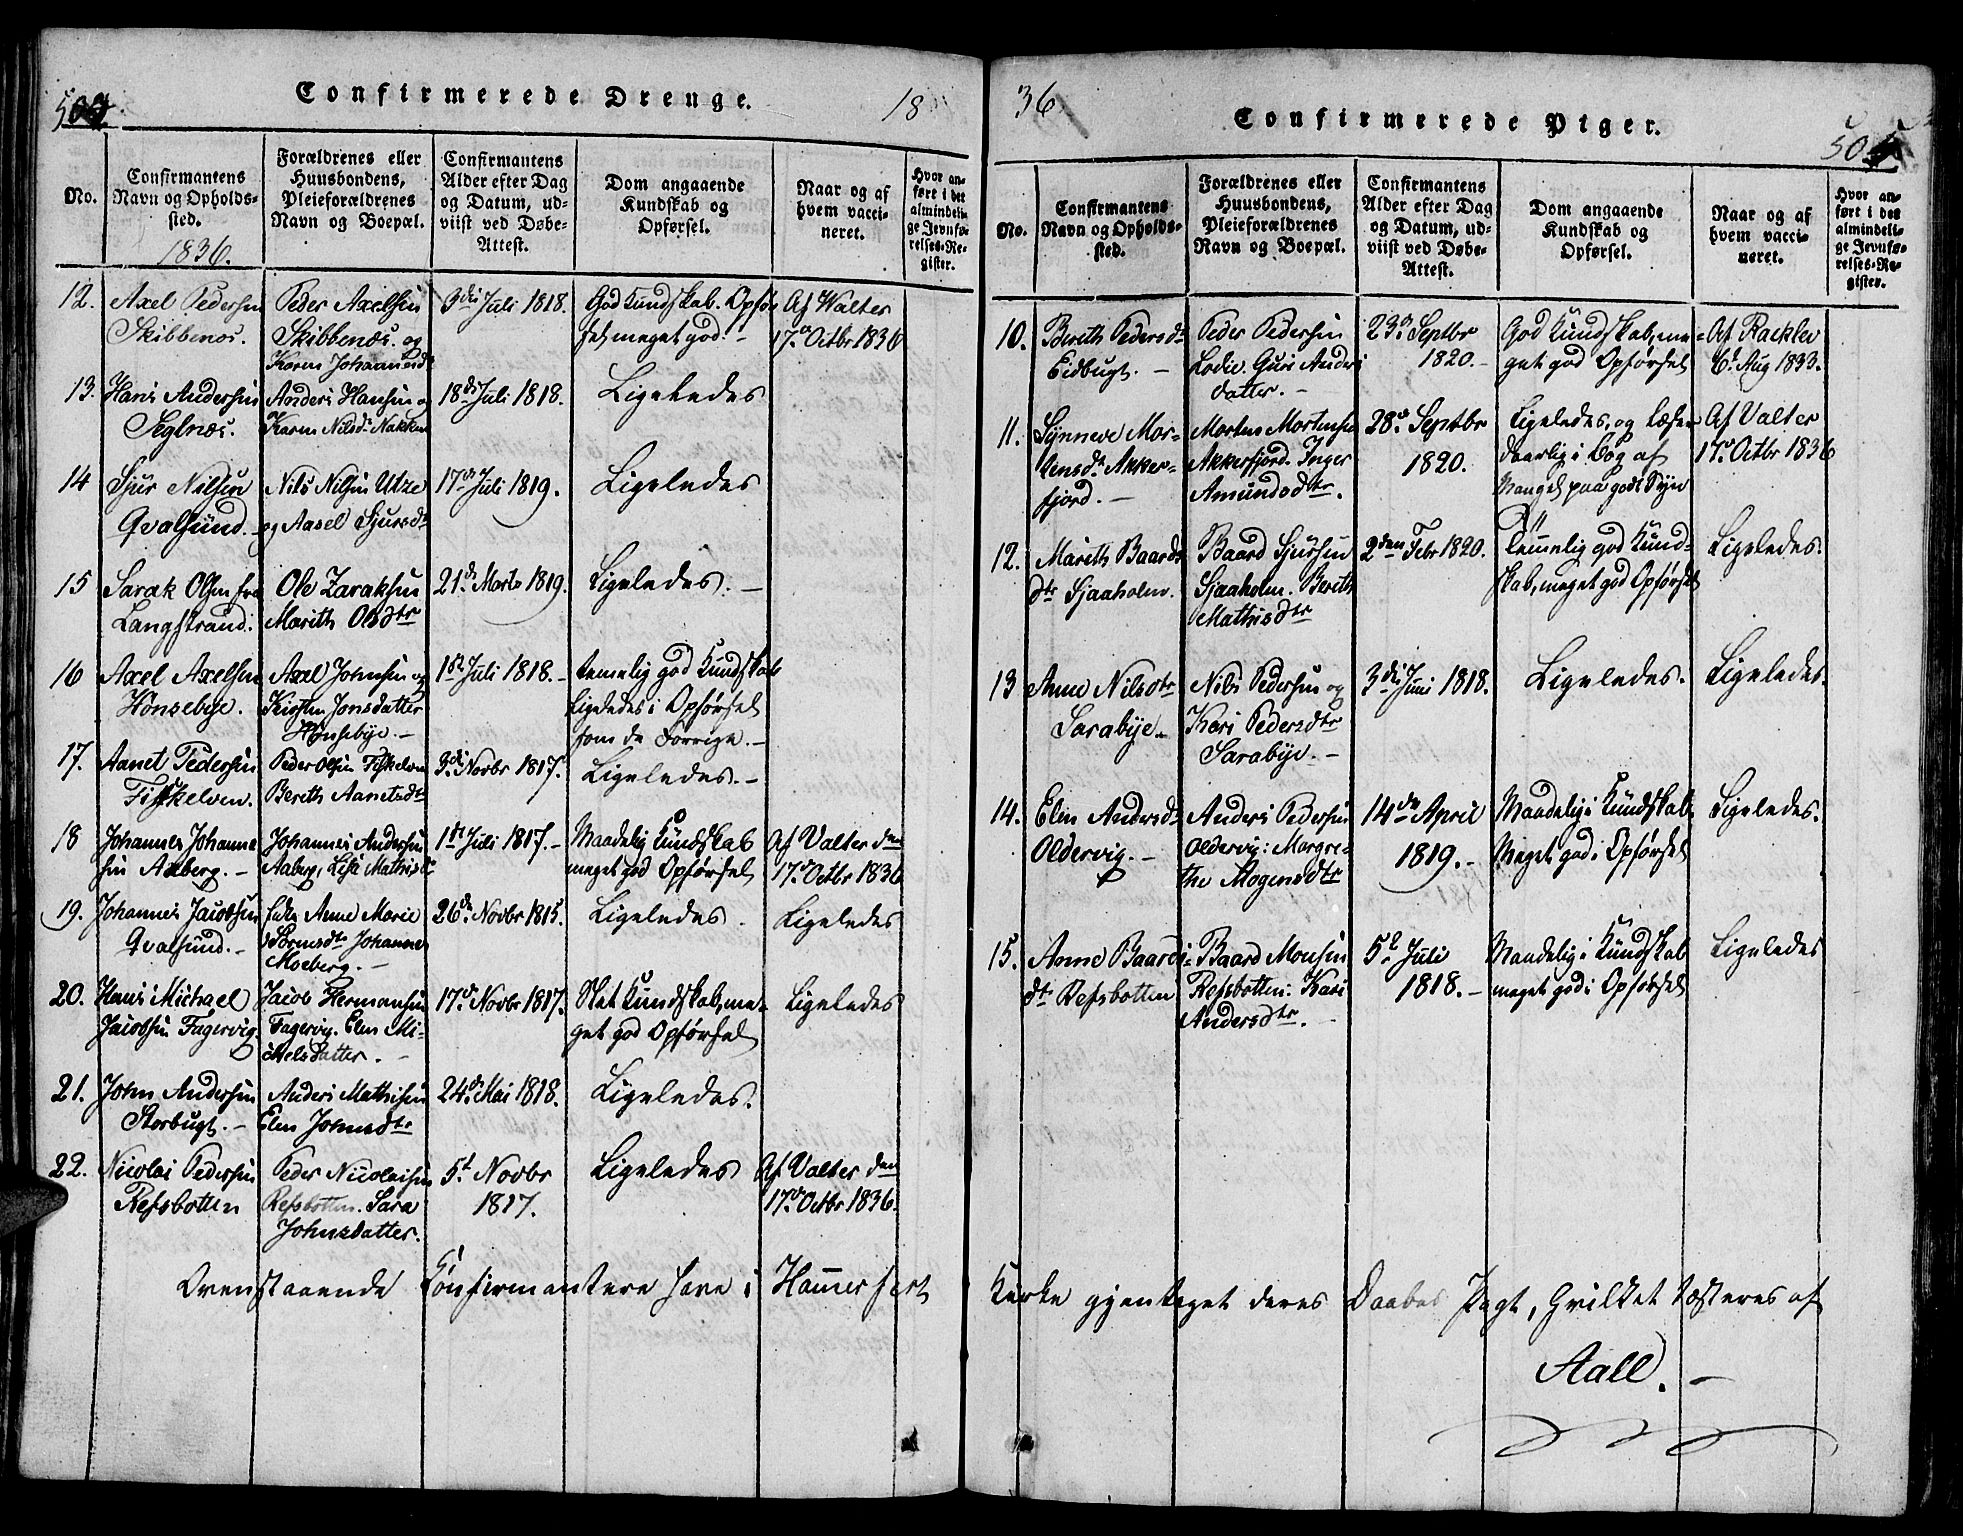 504.
Confirmerede Drenge.
18
No.
Confirmantens
Navn og Opholds-
sted.
1836.
Forældrenes eller
Huusbondens,
Pleieforældrenes
Navn og Boepæl.
Confirmantens
Alder efter Dag
og Datum, ud-
viist ved Døbe-
Attest.
Dom angaaende
Kundskab og
Opførsel.
Naar og af
hvem vacci-
neret.
Hvor an-
ført i det
almindeli-
ge Jevnfø-
relses-Re-
gister.
12. Axel Pedersen
Skibbenæs.
Peder Axelsen
Skibbenæs. og
Karen Johannesd
3die Juli 1818.
God Kundskab. Opfør
sel meget god. -
Af Walter
17de Octbr 1836
13. Hans Andersen
Seglnæs.
Anders Hansen og
Karen Nilsd: Nakken
18de Juli 1818.
Ligeledes
14 Sjur Nilsen
Qvalsund. -
Nils Nilsen Utze
og Aasel Sjursdr
17de Juli 1819.
Ligeledes
15 Sarak Olsen fra
Langstrand.
Ole Zaraksen
Marith Olsdtr
21de Marts 1819.
Ligeledes. -
16 Axel Axelsen
Hönsebye.
Axel Johnsen og
Kirsten Jonsdatter
Hönsebye. -
1ste Juli 1818. -
temelig god Kundskab
Ligeledes i Opførsel
som de Forrige. -
17. Aanet Pedersen
Fiskelven.
Peder Olsen Fiskelven
Berith Aanetsdtr
3die Novbr 1817.
Ligeledes. -
18 Johannes Johanne
sen Aaberg. -
Johannes Andersen
Aaberg, Lisa Mathisd
1ste Juli 1817. -
Maadelig Kundskab
meget god Opførsel
Af Valter den
17de Octbr 1836
19. Johannes Jacobsen
Qvalsund. -
Anne Marie
Johannes
Moeberg. -
26de Novbr 1815.
Ligeledes.
Ligeledes
20. Hans Michael
Jacobsen Fagervig
Jacob Hermansen
Fagervig. Elen Mi-
ckelsdatter. -
17de Novbr 1817.
Slet Kundskab, me-
get god Opførsel
Ligeledes
21. John Andersen
Storbugt. -
Anders Mathisen
Elen Johnsdtr
24de Mai 1818.
Ligeledes.
22. Nicolai Pedersen
Refsbotten
Peder Nicolaisen
Refsbotten. Sara
Johnsdatter.
5t Novbr
1817.
Ligeledes
Af Valter den
17de Octbr 1836.
36
Confirmerede Piger.
505
No.
Confirmantens
Navn og Opholds-
sted.
Forældrenes eller
Huusbondens,
Pleieforældrenes
Navn og Boepæl.
Confirmantens
Alder efter Dag
og Datum, ud-
viist ved Døbe-
Attest.
Dom angaaende
Kundskab og
Opførsel.
Naar og af
hvem vacci-
neret.
Hvor an-
ført i det
almindeli-
ge Jevnfø-
relses-Re-
gister.
10. Berith Pedersd
Eidbugt. -
Peder Pedersen
Lodie. Guri Anders
datter. -
23de Septbr
1820. -
God Kundskab, me-
get god Opførsel
Af Racklev
6t Aug 1833.
11. Synneve Mor-
tensdr Akker-
fjord. -
Morten Mortensen
Akkerfjord. Inger
Amundsdtr.
28de Septbr
1820.
Ligeledes, og læser
daarlig i Bog af
Mangel paa godt Syn
Af Valter
17de Octbr 1836
12. Marith Baards
dtr Sjaaholm.
Baard Sjursen
Sjaaholm. Berith
Mathisdtr
2den Febr 1820.
Temmelig god Kund-
skab, meget god Opførsel
Ligeledes.
13 Anne Nilsdtr
Sarabye. -
Nils Pedersen og
Kari Pedersdtr
Sarabye. -
3die Juni 1818.
Ligeledes.
Ligeledes.
14. Elen Andersd
Oldervig. -
Anders Pedersen
Oldervig: Margre-
the Mogensdtr
14de April
1819. -
Maadelig i Kundskab
Meget god i Opførsel
Ligeledes.
15. Anne Baards-
dtr Refsbotten
Baard Monsen
Refsbotten: Kari
Andersdtr. -
5t Juli
1818. -
Maadelig i Kundskab
meget god i Opførsel
Ligeledes
Ovenstaaende Confirmantere have i Hammerfest Kirke gjentaget deres Daabes Pagt, hvilket testeres af
Aall. -